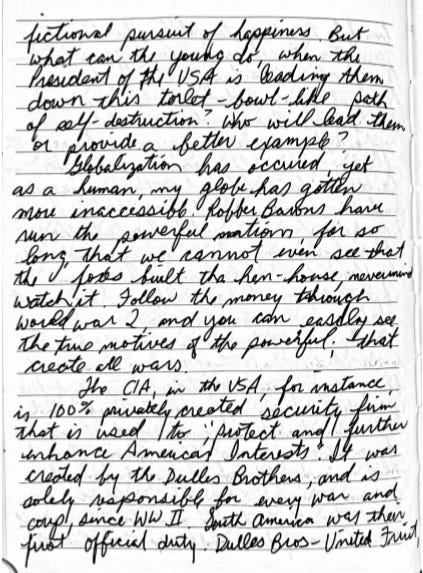 fictional pursuit of happiness. But
what can the young do, when the
President of the USA is leading them
down this toilet-bowl-like path
of self-destruction? Who will lead them
or provide a better example?
Globalization has occured, yet
as a human, my globe has gotten
more inaccessible. Robber Barons have
run the powerful nations for so
long, that we cannot even see that
the foxes built tha hen-house, nevermind
watch it. Follow the money through
world war 2 and you can easily see
the true motives of the powerful; that
create all wars.
The CIA, in the USA, for instance,
is 100% privately created security firm
that is used to "protect and further
enhance American Interests". It was
created by the Dulles Brothers, and is
solely responsible for every war and
coup, since WW II. South America was their
first official duty. Dulles Bros - United Fruit,